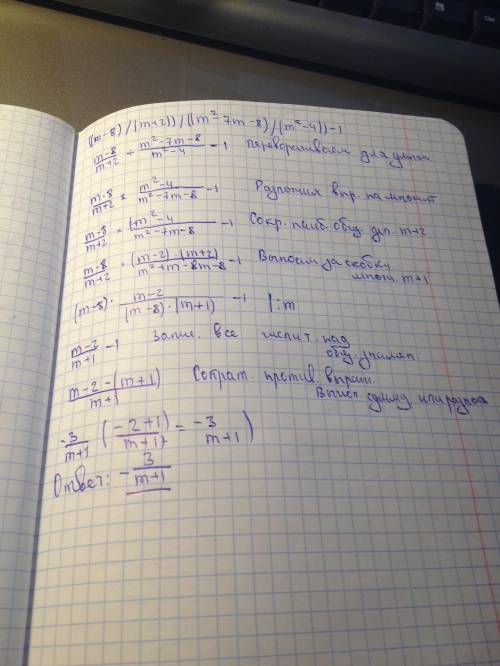 ((m-8)/(m+2))/((m²-7m-8)/(m²-4))-1
(m-8)/(m+2) ÷ (m²-7m-8)/(m²-4) -1 переворачиваем для
(m-8)/(m+2) × (m²-4)/(m²-7m-8) -1
(m-8)/(m+2) × (m²-4)/(m²-7m-8) -1 Сокр. наиб. общ. m+2
(m-8)/(m+2) · ((m-2)·(m+2))/(m²+m-8m-8) -1 Выносим за скобку
m+1
(m-8)· (m-2)/((m-8)·(m+1)) -1 |:m
(m-2)/(m+1) -1 Запис. все числит. над
общ. знамен.
(m-2-(m+1))/(m+1) Сократ. против. выраж.
сумму или
-3/(m+1) ((-2+1)/(m+1) = -3/(m+1))
Ответ: -3/(m+1)